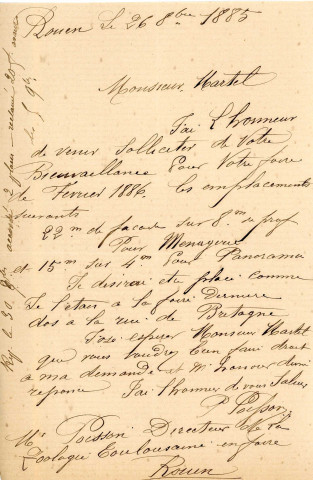 Rouen Le 26 8bre 1885
Monsieur Martel
J'ai L'honneur
de venir solliciter de Votre
Bienvaillance Pour Votre foire
de Fevrier 1886. Les emplacements
suivants
22m de facade sur 8m de prof
Pour Menagerie
et 15m sur 4m Pour Panorama
Je desirai etre placé comme
Je l'etai a la foire Derniere
dos a la rue de Bretagne
J'ose esperer Monsieur Martel
que vous voudrez bien faire droit
a ma demande et m'honorer d'une
reponse J'ai l'honneur de vous Saluer
P Poisson
Mr Poisson Directeur de la
Zoologie Toulousaine en foire
Rouen
Rep le 30